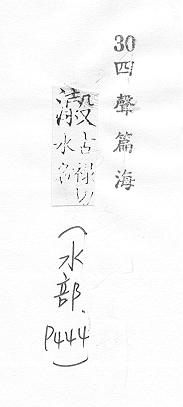 30 四聲篇海
古祿切
水名
(水部.P444)